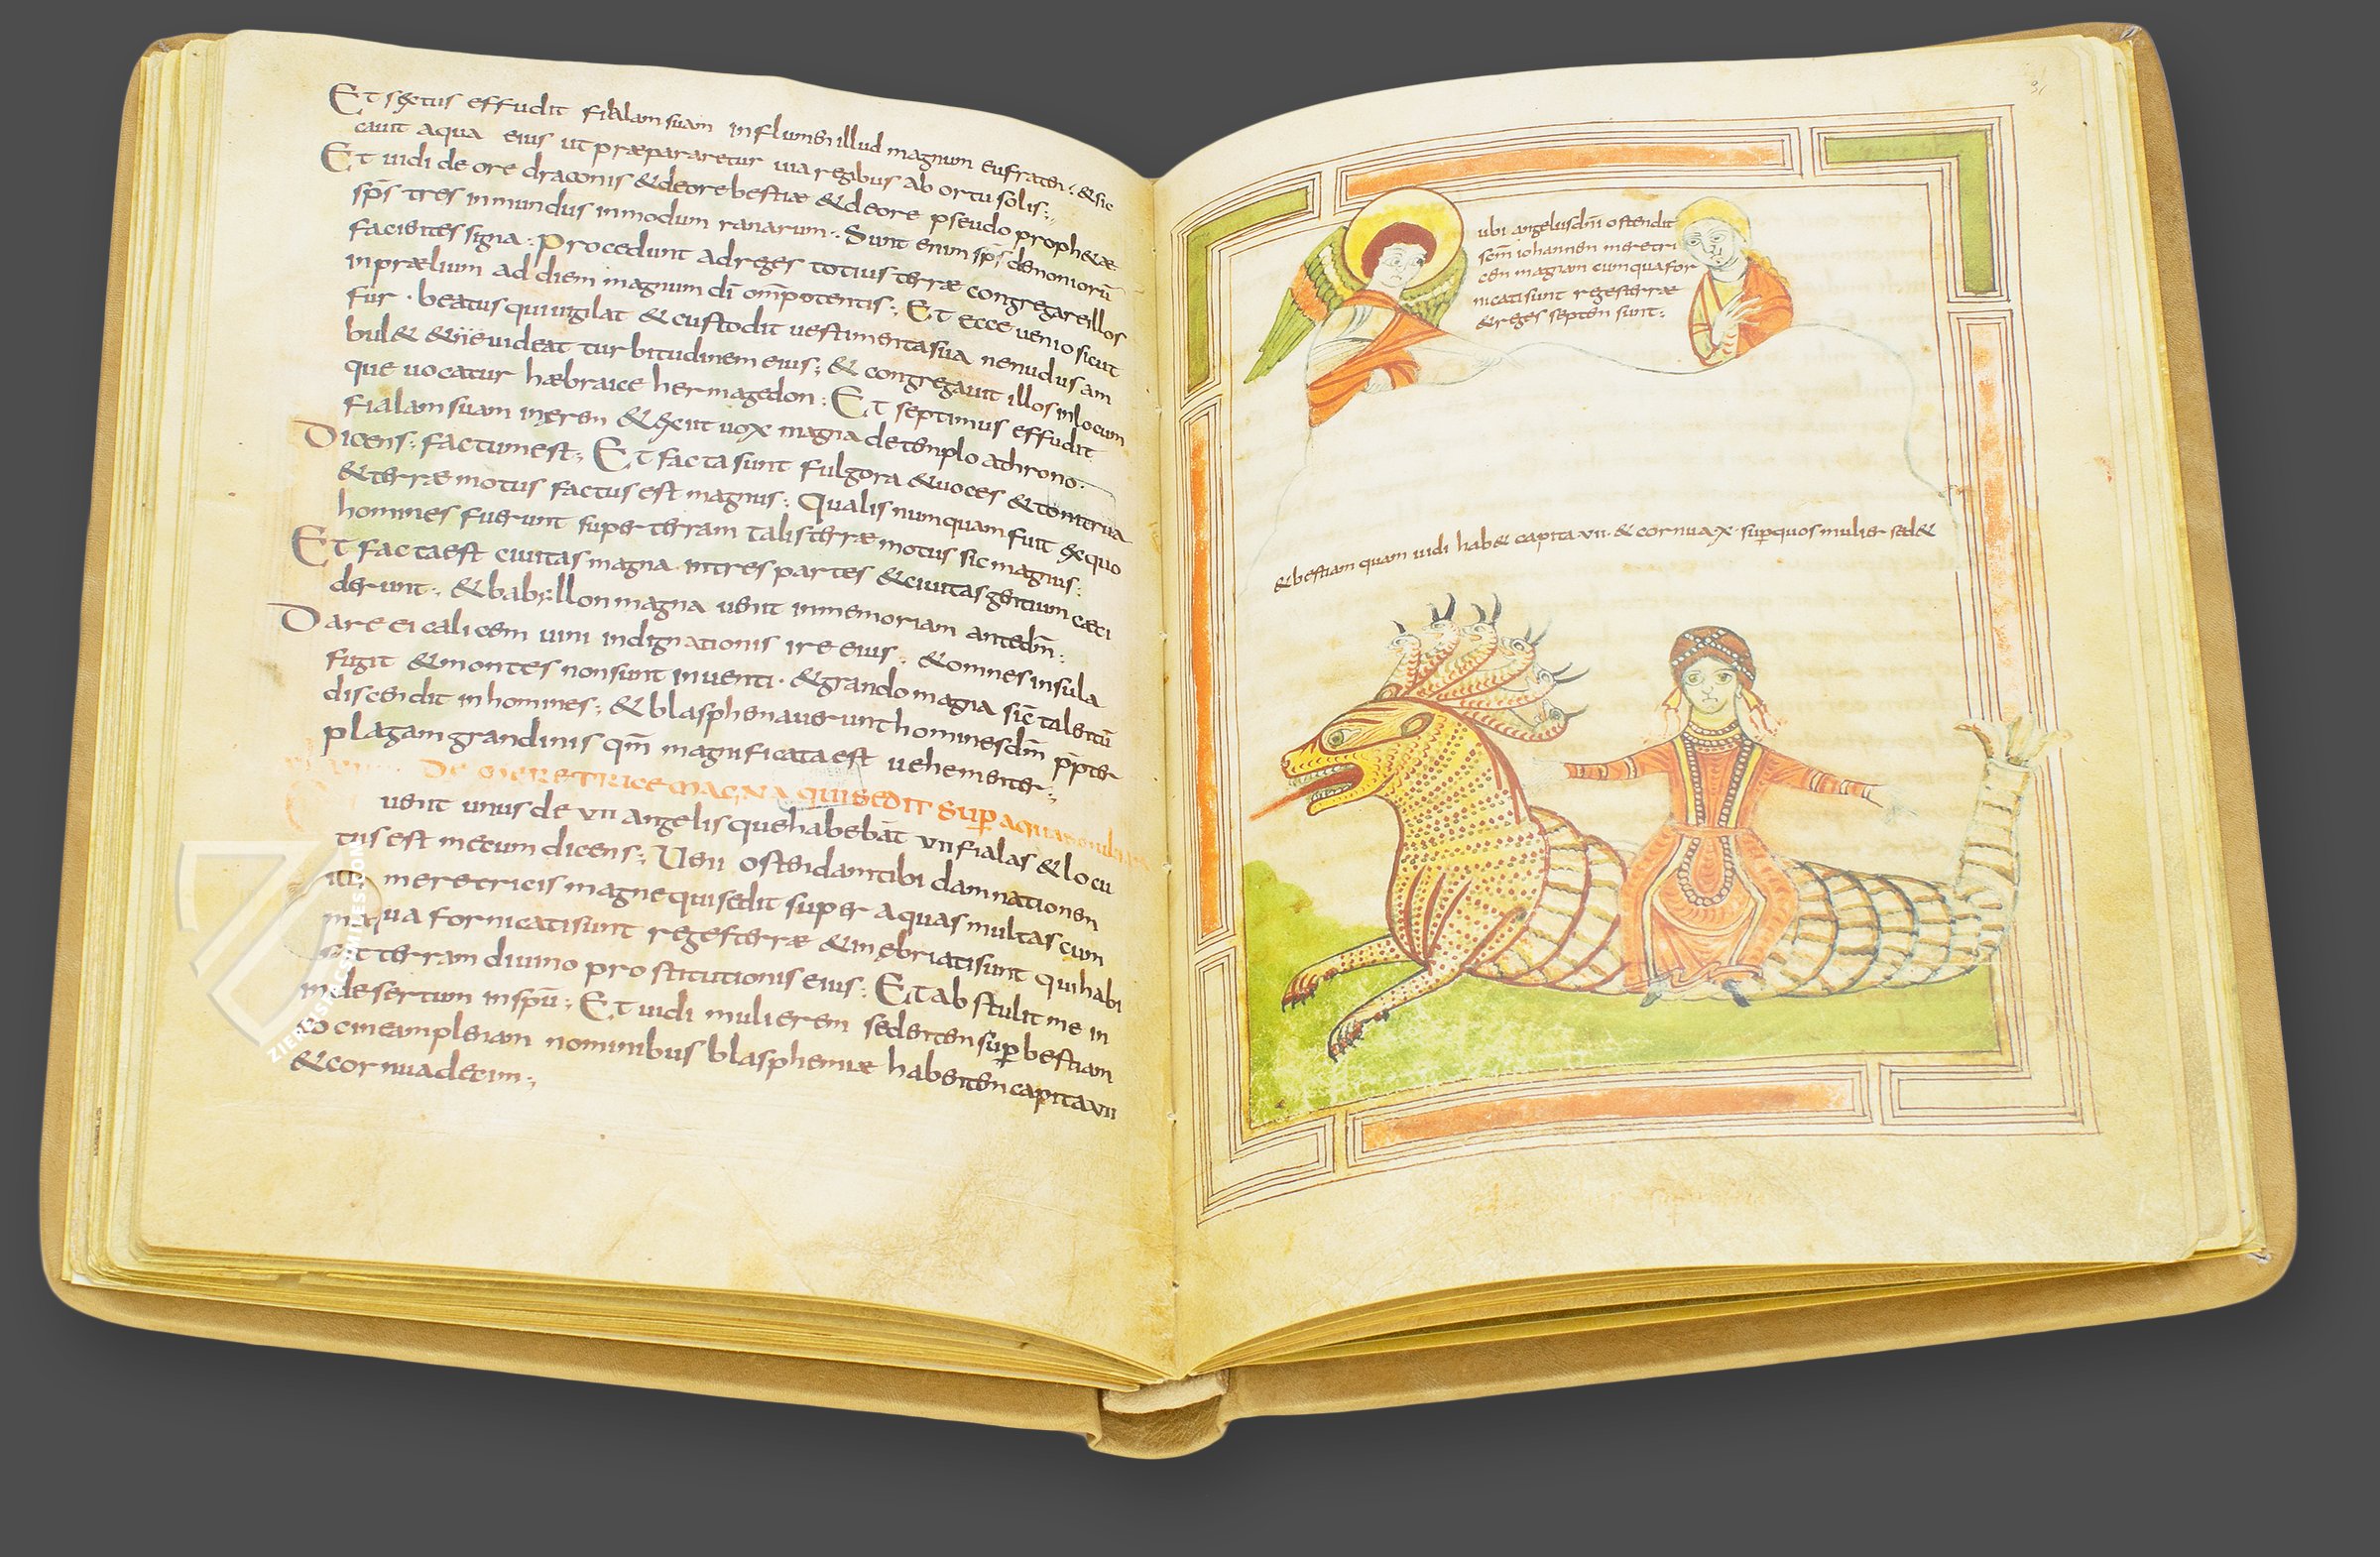 Et sextus effudit fialam suam in flumen illud magnum eufraten: & sic
cavit aqua eius ut præpararetur via regibus ab ortu solis:,
Et vidi de ore draconis & de ore bestiæ & de ore pseudo prophetæ
sp̄s tres inmundus in modum ranarum:. Sunt enim sp̄s demoniorū
facientes signa: Procedunt ad reges totius terræ congregare illos
in prælium ad diem magnum dī om̄potentis:, Et ecce venio sicut
fur · beatus qui vigilat & custodit vestimenta sua ne nudus am
bul& & videat turbitudinem eius:, & congregavit illos in locum
que vocatur hæbraice hermagedon: Et septimus effudit
fialam suam in æren & exiit vox magna de templo a throno·
Dicens: factum est:, Et facta sunt fulgora & voces & tonitrua
& terræ motus factus est magnus: Qualis numquam fuit ex quo
homines fuerunt super terram talis terræ motus sic magnus:
Et facta est civitas magna in tres partes & civitas gentium ceci
derunt:, & babyllon magna venit in memoriam ante dm̄:
Dare ei calicem vini indignationis ire eius: & omnes insula
fugit & montes non sunt inventi · & grando magna sic̄ talentū
discendit in homines:, & blasphemaverunt homines dm̄ pp̄ter
plagam grandinis qm̄ magnificata est vehementer:,
De meretrice magna qui sedit sup aquas
venit unus de vii angelis que habebāt vii fialas & locu
tus est mecum dicens:, Veni ostendam tibi damnationem
meretricis magne qui sedit super aquas multas cum
qua fornicati sunt reges terræ & inebriati sunt qui habi
terram di vino prostitutionis eius: Et abstulit me in
in desertum in spū: Et vidi mulierem sedentem sup bestiam
coccineam plenam nominibus blasphemiæ habentem capita vii
& cornua decim:,
31
ubi angelus dn̄i ostendit
scm̄ iohannen meretri
cen magnam cum qua for
nicati sunt reges terræ
& reges septen sunt:,
& bestiam quam vidi hab& capita vii · & cornua x · sup quos mulier sed&
ZIEREIS